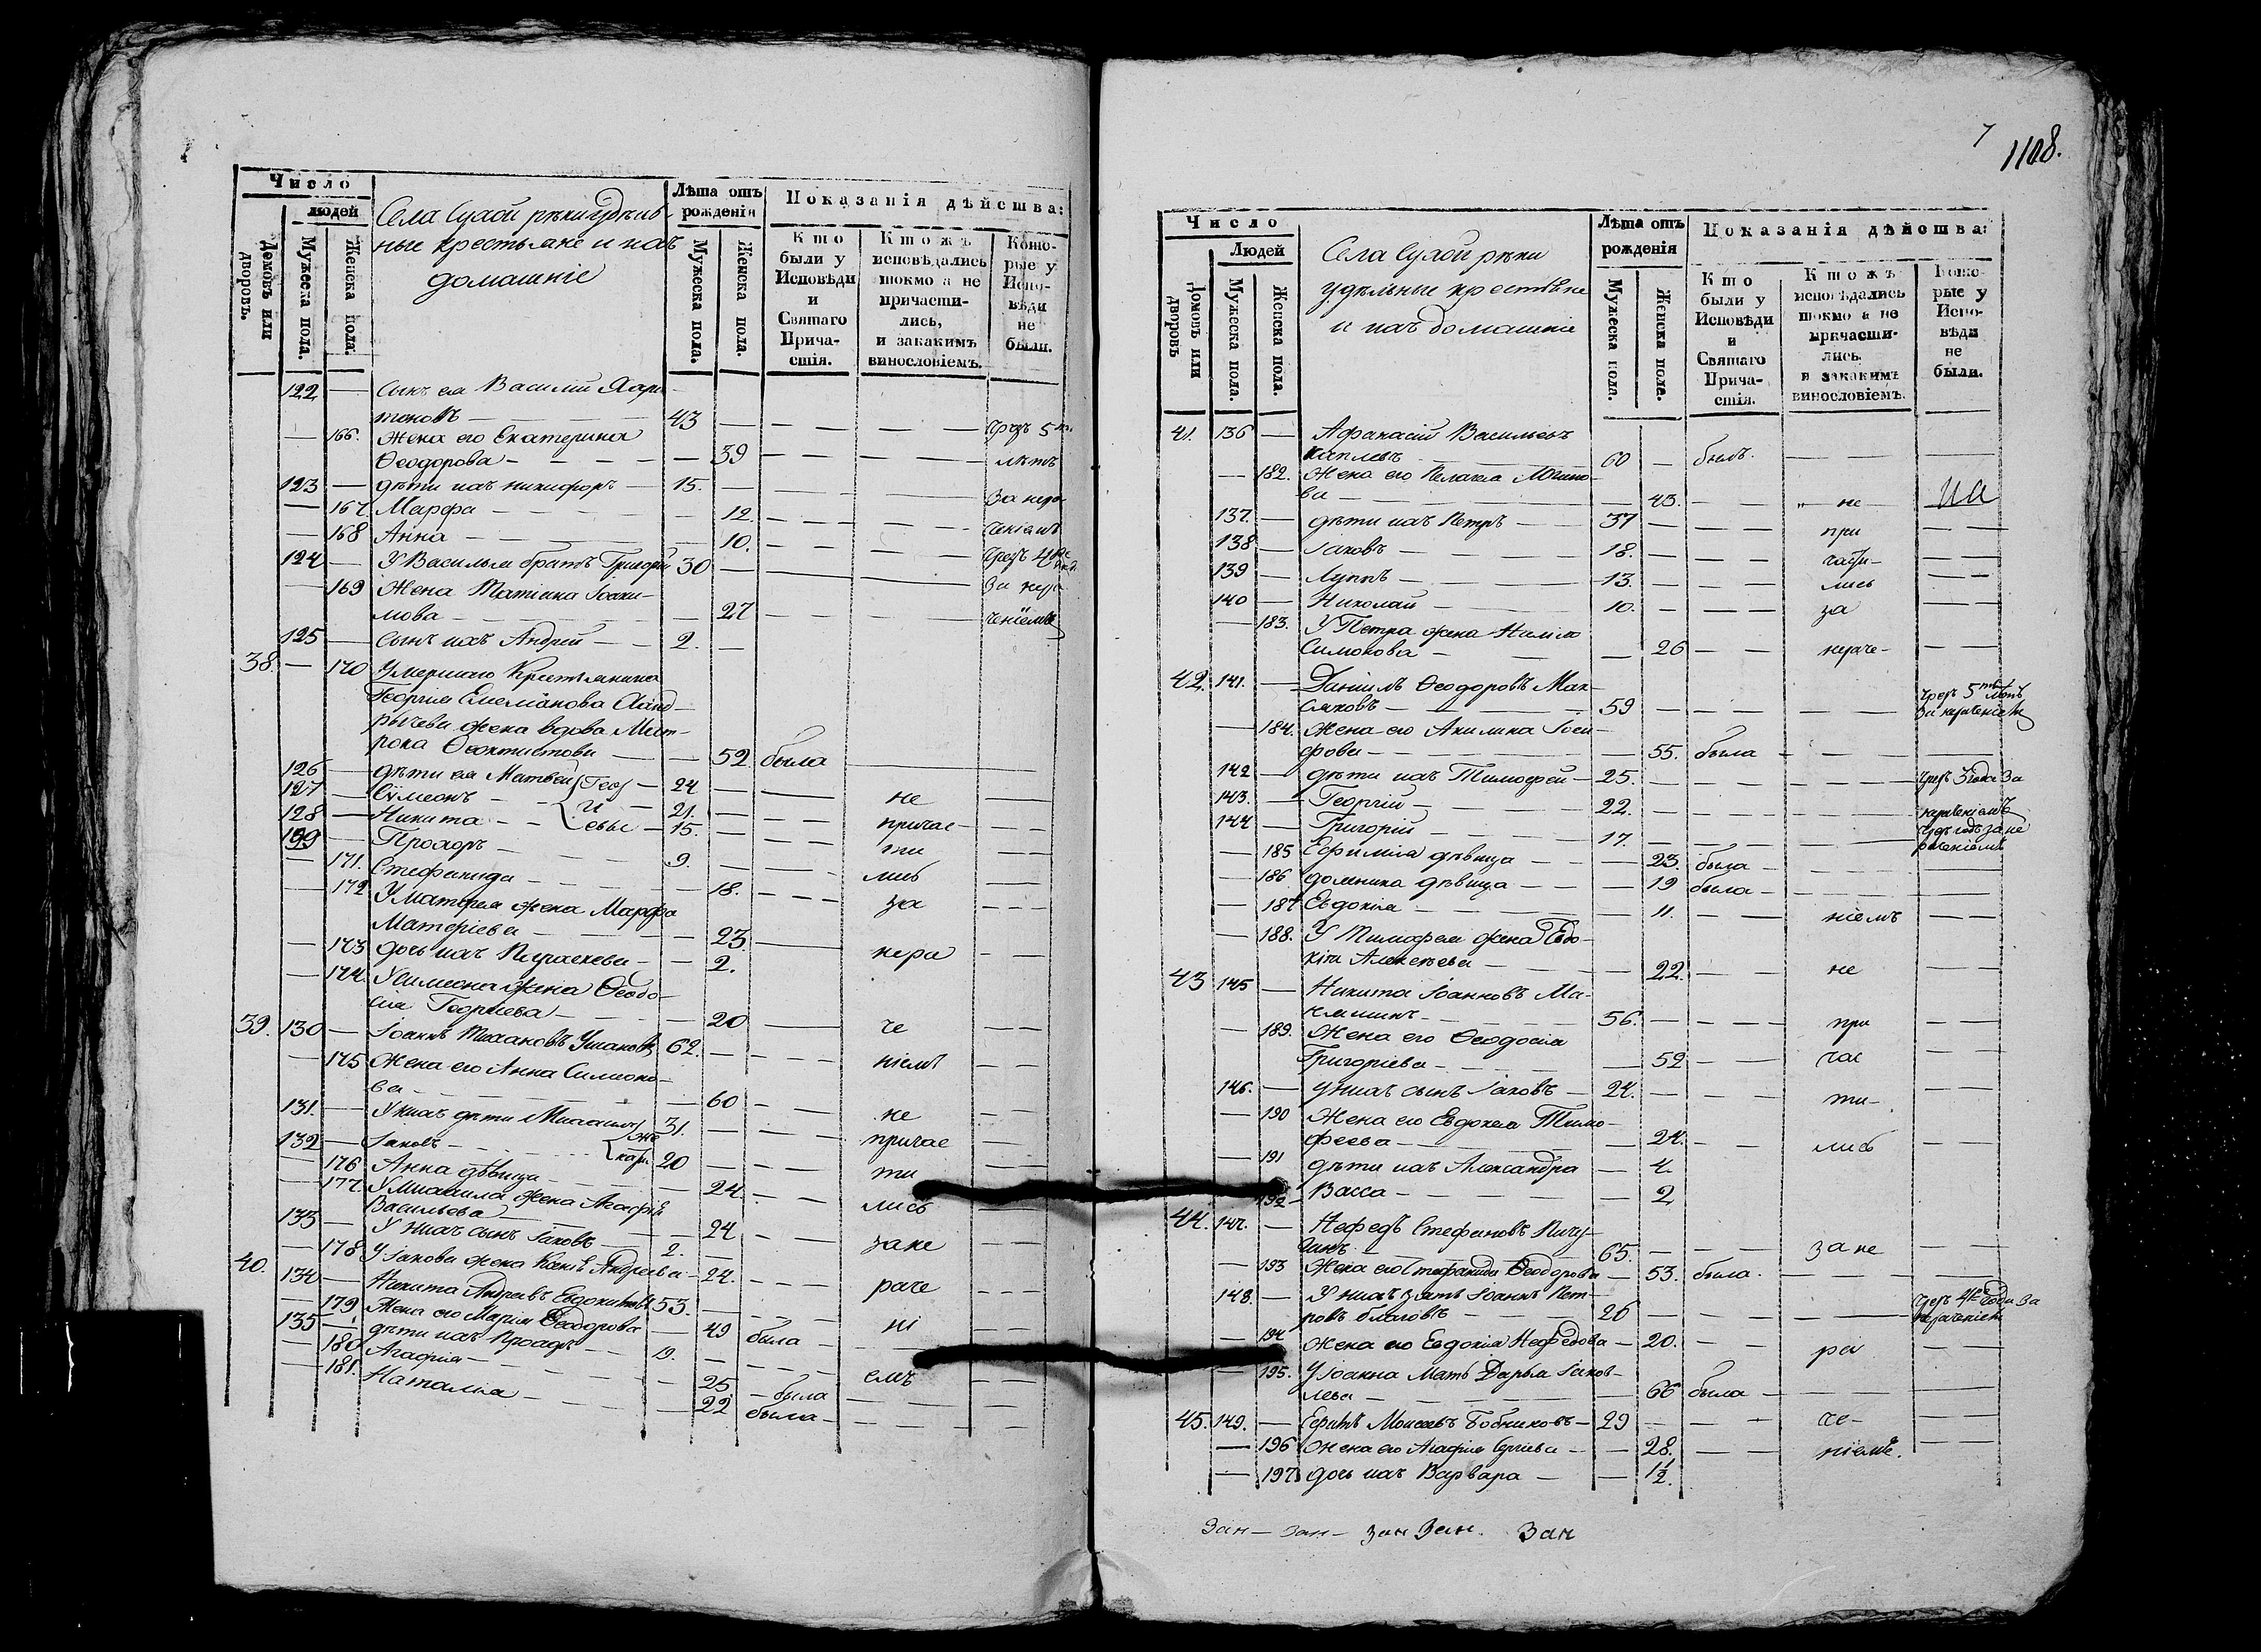 Число
людей
Домовъ или дворовъ.
Мужеска пола.
Женска пола.
Села Сухой рѣки удѣль-
ные крестьяне и ихъ
домашніе
Лѣта отъ рожденія
Мужеска пола.
Женска пола.
Показанія дѣйства:
Кто были у Исповѣди и Святаго Причастія.
Кто жъ исповѣдались токмо а не причастились, и закакимъ винословіемъ.
Которые у Исповѣди не были.
122 — Сынъ ея Василий Хари-
тоновъ — 43 — — — — чрезъ 5ть
— 166. Жена его Екатерина
Ѳеодорова — — 39 — — — лѣтъ
123 — дѣти ихъ Никифоръ — 15. — — — за нера-
— 167 Марфа — — 12. — — — ченіемъ
— 168 Анна — — 10. — — — чрезъ 4ре
124 — У Василья братъ Григорій 30 — — — за нера-
— 169 Жена Татіана Іоаки-
мова — — 27 — — — ченіемъ
125 — Сынъ ихъ Андрей — 2. —
38. — 170 Умершаго Крестьянина
Георгія Емеліанова
жена вдова Мит-
рова Ѳеоктистова — — 52 была — —
126 — дѣти ея Матвей — 24 — — —
127 — Сѵмеонъ — 21. — не —
128 — Никита — 15. — причас- —
129 — Прохоръ — 9. — ти —
— 171. Стефанида — — 18. — лись —
— 172 У Матфея жена Марфа за
Матфіева — — 23. —
— 173 дочь ихъ Параскева — — 2. нера —
— 174. У Симеона жена Ѳеодо-
сія Георгіева — — 20 — че —
39. 130 — Іоаннъ Ушаковъ 62. — — ніемъ —
— 175 Жена его Анна Симеоно-
ва — — 60 — не —
131. — У нихъ дѣти Михаилъ 31. — — причас —
132 — Іаковъ — 20 — — ти —
— 176 Анна дѣвица — — 24. — лись —
— 177. У Михаила жена Агафія
Васильева — — 24 — зане —
133 — У нихъ сынъ Іаковъ — 2. —
— 178 У Іакова жена Андреева — 24. — раче —
40. 134 — Никита Андреевъ Евдокимовъ 53. — — ні —
— 179. Жена его Марія Ѳеодорова — 49 была — —
135 — дѣти ихъ Прохоръ — 19. — — емъ —
— 180 Агафія — — 25 — была — —
— 181. Наталія — — 22 была — —
1108.
Число
Людей
Домовъ или дворовъ
Мужеска пола.
Женска пола.
Села Сухой рѣки
удѣльные крестьяне
и ихъ домашніе
Лѣта отъ рожденія
Мужеска пола.
Женска пола.
Показанія дѣйства:
Кто были у Исповѣди и Святаго Причастія.
Кто жъ исповѣдались токмо а не причастились. и закакимъ винословіемъ.
Которые у Исповѣди не были.
41. 136 — Афанасій Васильевъ
Каплевъ — 60 — былъ. — —
— 182. Жена его Пелагея
ва — — 43. — не —
137. — дѣти ихъ Петръ — 37 — — при —
138 — Іаковъ — 18. — — части- —
139 — Луппъ — 13. — — лись —
140 — Николай — 10. — — за —
— 183. У Петра жена
Симонова — — 26 — нераче- —
42. 141. — Даніилъ Ѳеодоровъ Мак-
саковъ — 59 — — — чрезъ 5ть лѣтъ за нераченіемъ
— 184. Жена его Акилина Іоси-
фова — — 55. была — —
142 — дѣти ихъ Тимоѳей — 25. — — — чрезъ 3 года за
143. — Георгій — 22. — — — нераченіемъ
144 — Григорій — 17. — — — чрезъ годъ за не
раченіемъ
— 185 Ефимія дѣвица — — 23. была — —
— 186 домника дѣвица — — 19 была — —
— 187 Евдокія — — 11. — ніемъ —
— 188. У Тимоѳея жена Евдо-
кія Алексѣева — — 22. — не —
43 145 — Никита Іоанновъ Ма-
— 56. — — при —
— 189. Жена его Ѳеодосія
Григоріева — — 52 — час —
146. — У нихъ сынъ Іаковъ — 24. — — ти- —
— 190 Жена его Евдокея Тимо-
феева — — 24. — лись —
— 191 дѣти ихъ Александра — 4.
192 Васса — — 2
44. 147. — Нефедъ Стефановъ Пичу-
гинъ — 65. — — за не —
— 193 Жена его Стефанида Ѳеодорова — 53. была. — —
148. — У нихъ зять Іоаннъ Пет-
ровъ — 26 — — — чрезъ 4ре года за нераченіемъ
— 194 Жена его Евдокія Нефедова — 20. — ра —
— 195. У Іоанна Мать Дарья Іаков-
лева — — 66 была — —
45. 149. — Моисеевъ Бобниковъ — 29 — — че- —
— 196 Жена его Агафія Сергіева — — 28. — ніемъ. —
— 197 дочь ихъ Варвара — — 1½.
Зан — зан — зан Зан. Зан